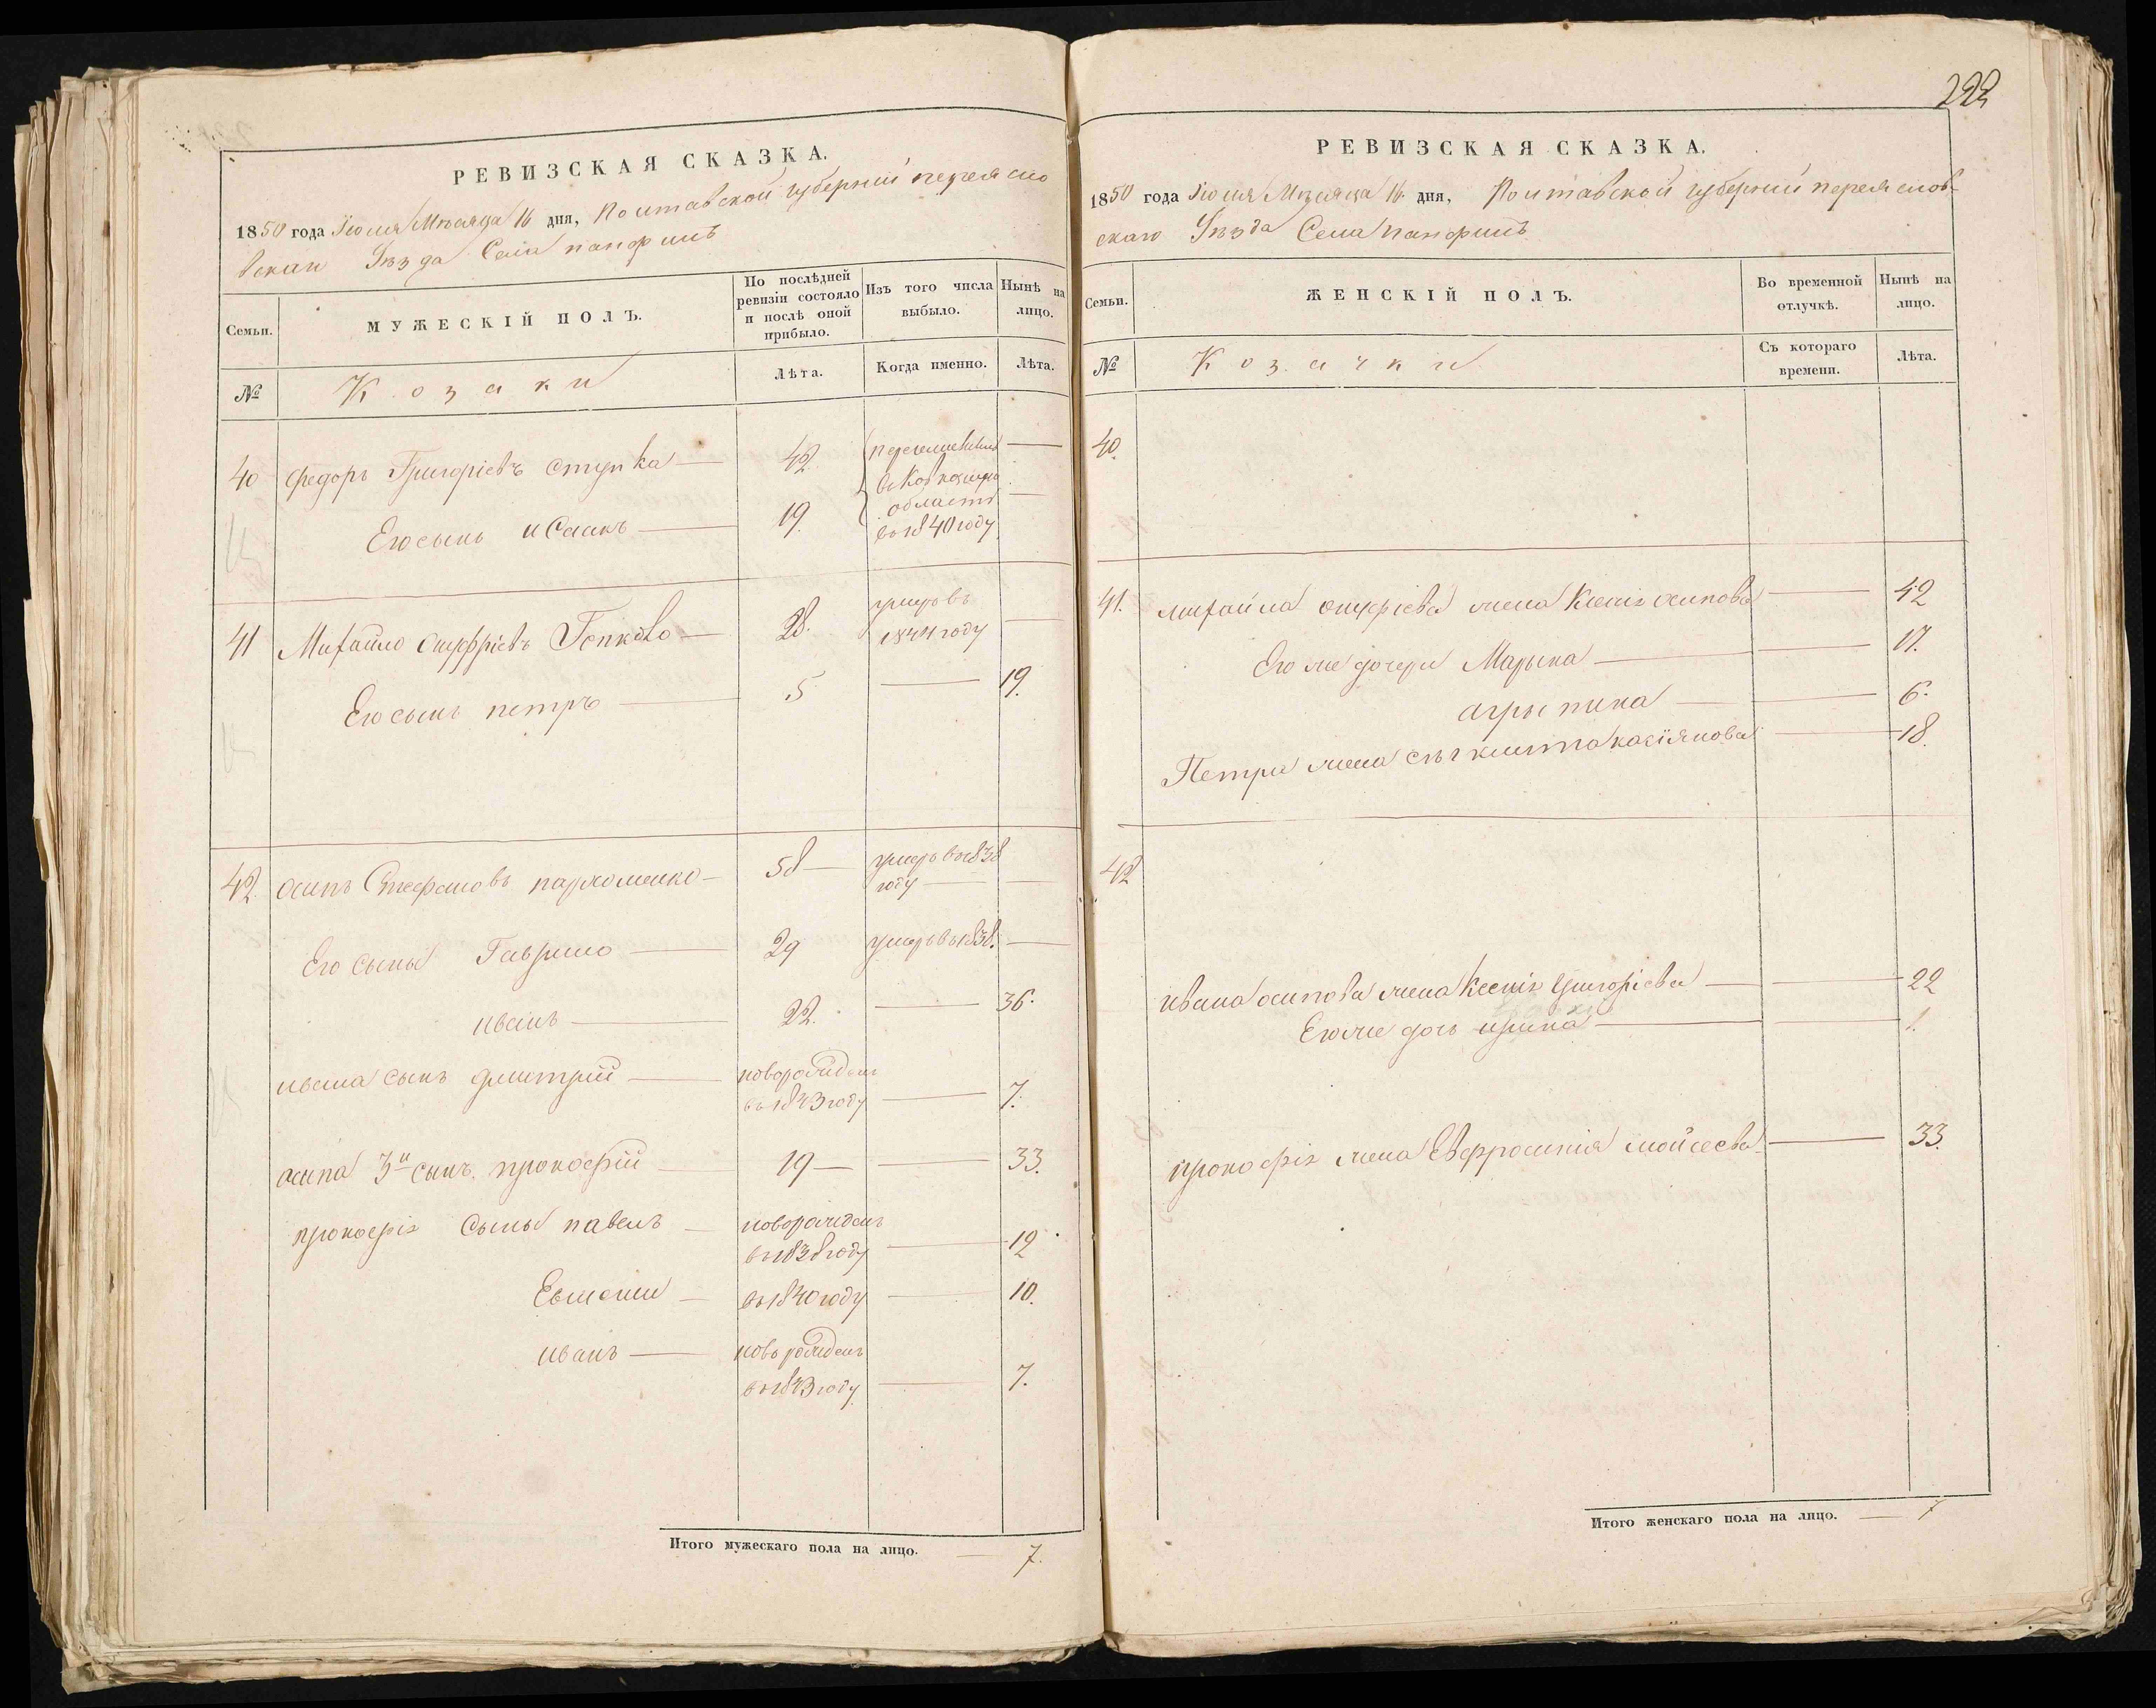 222
РЕВИЗСКАЯ СКАЗКА.
1850 года Іюля Мѣсяца 16 дня, Полтавской губерніи переясло
вскаго Уѣзда Села панфилъ
Семьи.
МУЖЕСКІЙ ПОЛЪ.
По послѣдней ревизіи состояло и послѣ оной прибыло.
Изъ того числа выбыло.
Нынѣ на лицо.
№
Козаки
Лѣта.
Когда именно.
Лѣта.
40 федоръ Григоріевъ ступка — 42 переселивши —
въ Кавказскую
Его сынъ исаакъ — 19. область —
въ 1840 году
41 Михайло онуфріевъ Гепкало — 28. умеръ въ
1844 году —
Его сынъ петръ — 5 — 19.
42. осипъ Стефановъ пархоменко — 58 — умеръ въ 1838
году —
Его сыны Гаврило — 29 умеръ въ 1838. —
иванъ — 22. — 36.
ивана сынъ дмитрій — новорожденъ
въ 1843 году — 7.
осипа 3й сынъ. прокофій — 19 — — 33.
прокофія сыны павелъ — новорожденъ
въ 1838 году — 12
Евмени — въ 1840 году — 10.
иванъ — новорожденъ
въ 1843 году — 7.
Итого мужескаго пола на лицо. — 7.
РЕВИЗСКАЯ СКАЗКА.
1850 года Іюля Мѣсяца 16 дня, Полтавской губерніи переяслов-
скаго Уѣзда Села панфилъ
Семьи.
ЖЕНСКІЙ ПОЛЪ.
Во временной отлучкѣ.
Нынѣ на лицо.
№
Козачки
Съ котораго времени.
Лѣта.
40.
41. михайла онуфріева жена Ксенія осипова — 42
Его же дочери Марына — — 17.
агрыпина — — 6.
Петра жена касіянова — 18.
42
ивана осипова жена Ксенія григоріева — — 22
Его же дочь ирина — — 1.
прокофія жена Евфросинія мойсеева — 33.
Итого женскаго пола на лицо. — 7